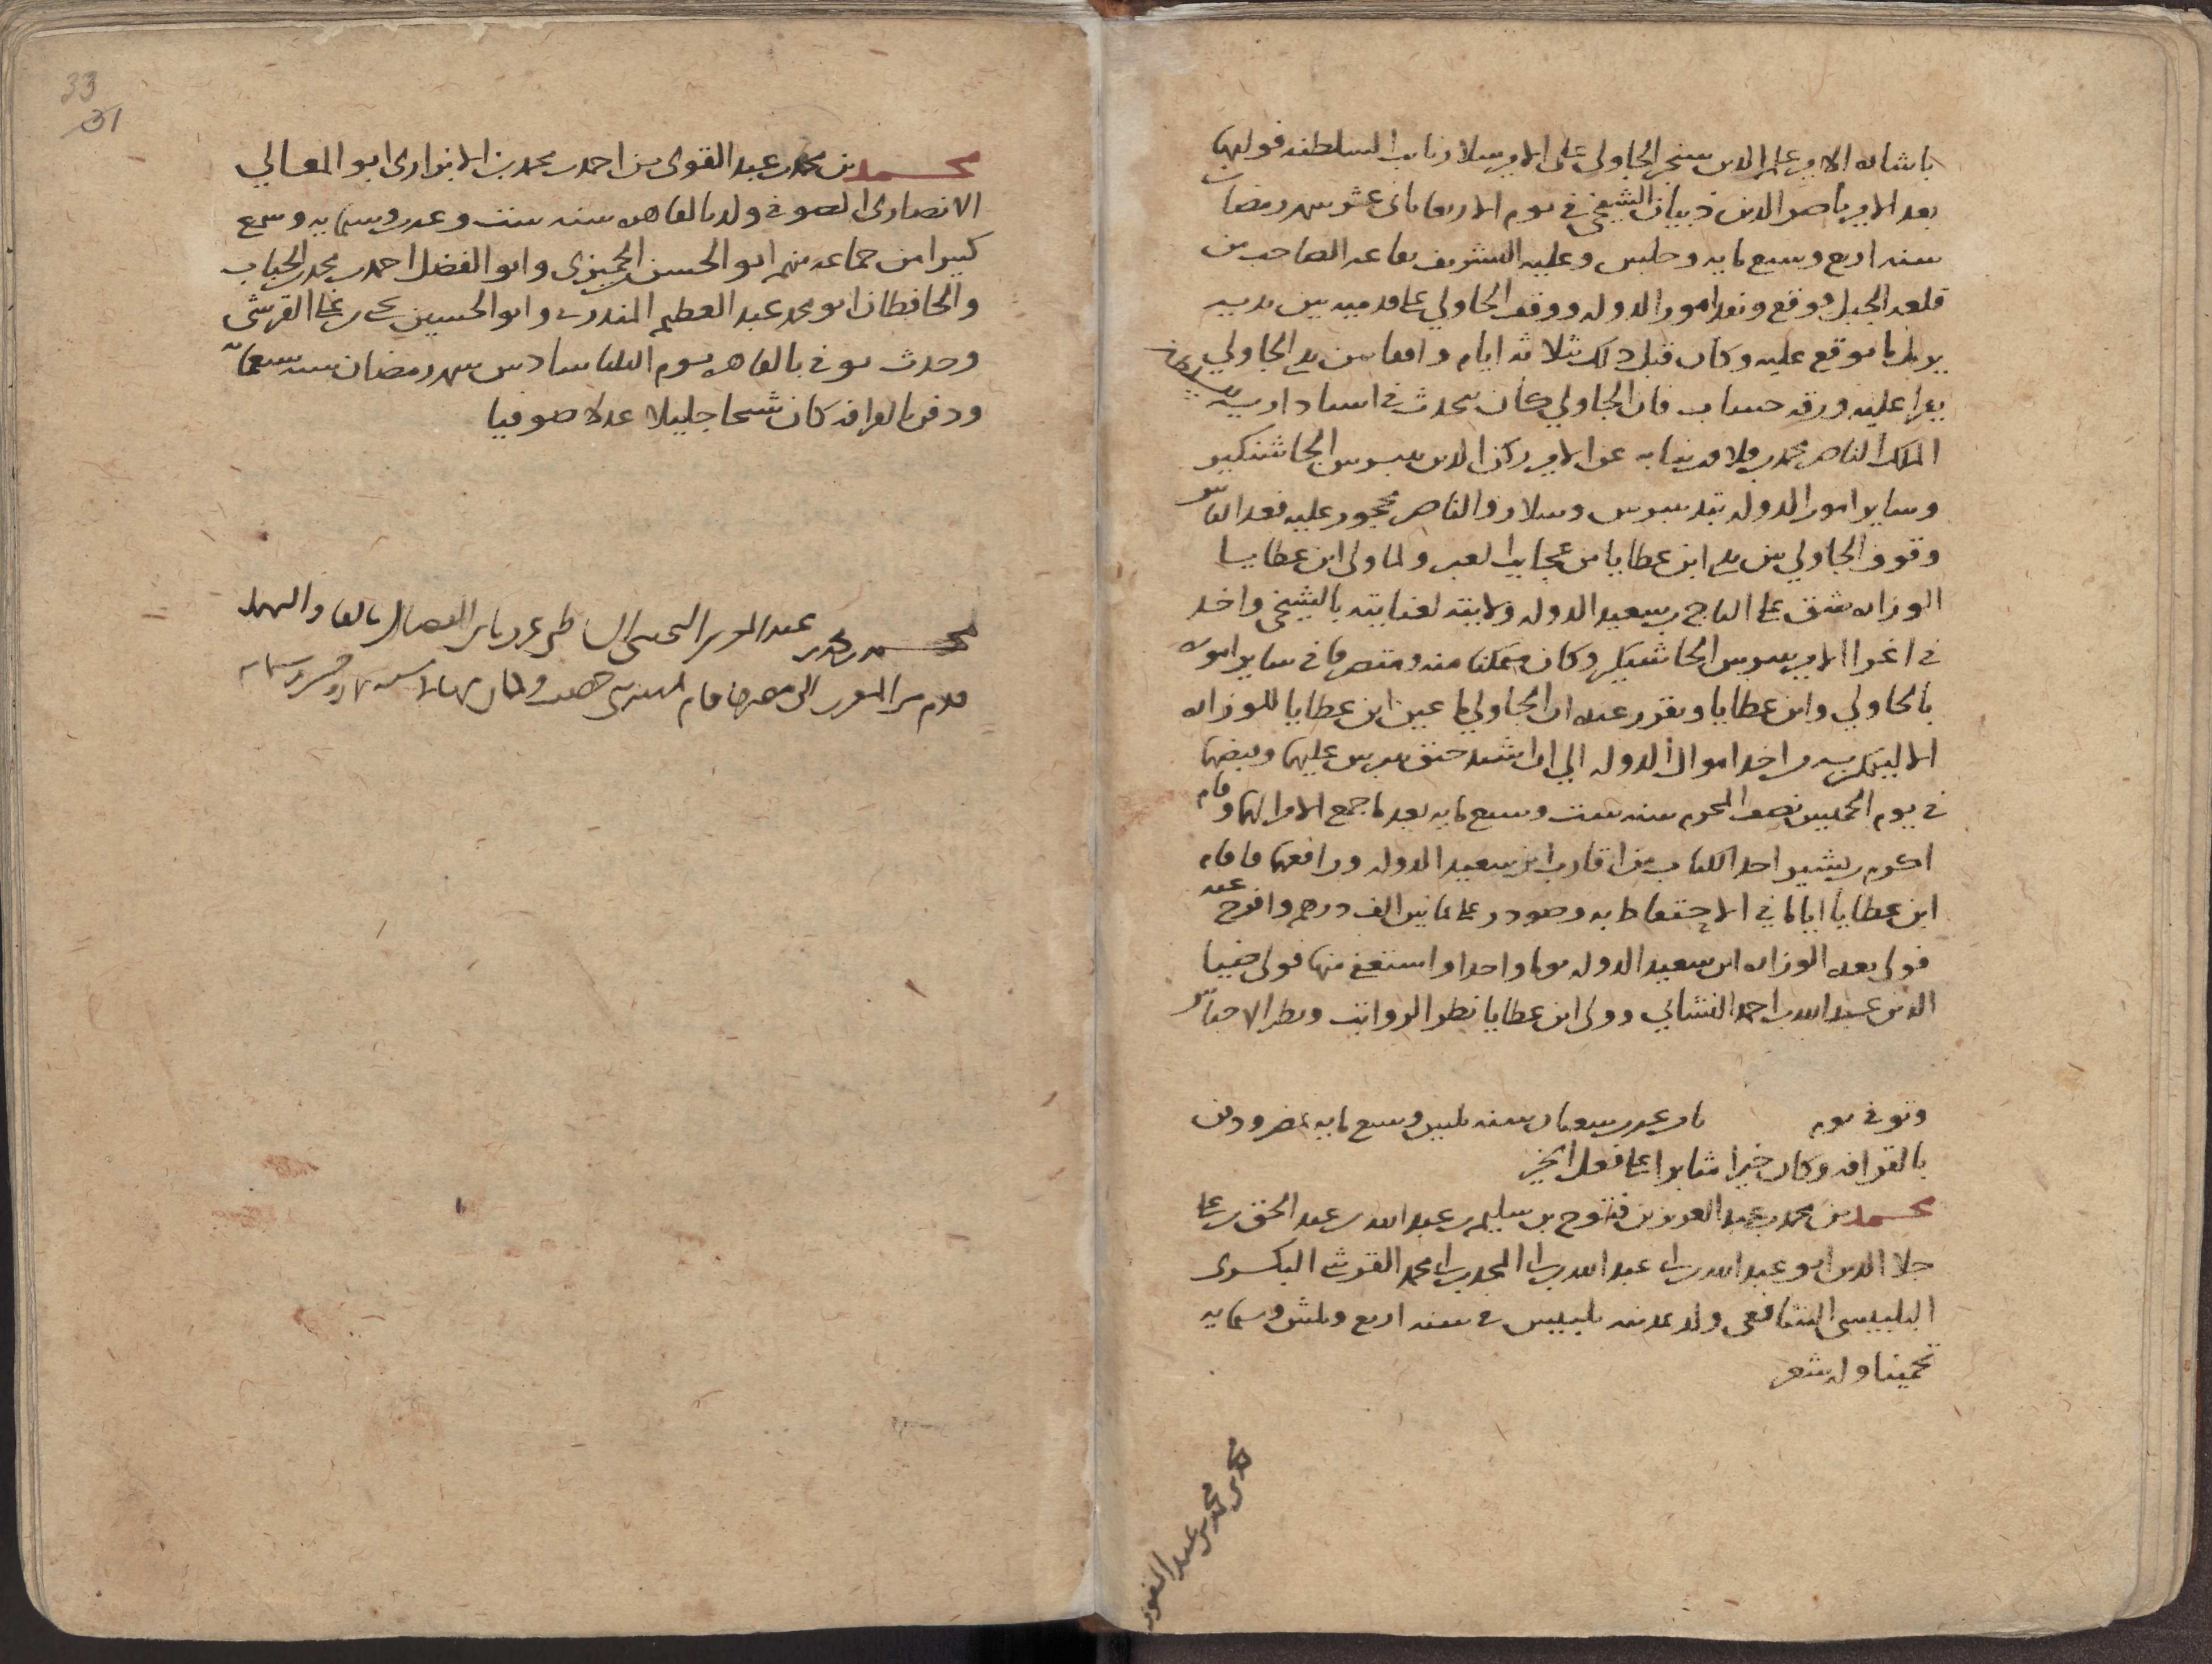 باشاره الامير علم الدين سنجر الجاولي على الامير سلار نايب السلطنه فوليها
بعد الامير ناصر الدين ذبيان الشيخي في يوم الاربعا ثاني عشر شهر رمضان
سنه اربع وسبع مايه وجلس وعليه التشريف بقاعه الصاحب من
قلعه الجبل فوقع ونفد امور الدوله ووقف الجاولي على قدميه بين يديه
يرمل ما يوقع عليه وكان قبل ذلك بثلاثه ايام واقفا بين يدي الجاولي
يقرا عليه ورقه حساب فان الجاولي كان يتحدث في استاداريه السلطان
الملك الناصر محمد بن قلاون نيابه عن الامير ركن الدين بيبرس الجاشنكير
وساير امور الدوله بيد بيبرس وسلار والناصر محجور عليه فعد الناس
وقوف الجاولي بين يدي ابن عطايا من عجايب العبر ولما ولي ابن عطايا
الوزاره شق على التاج بن سعيد الدوله ولايته لعنايته بالشيخي واخد
في اغرا الامير بيبرس الجاشنكير وكان متمكنا منه ومتصرفا في ساير اموره
بالجاولي وابن عطايا ويقرر عنده ان الجاولي ما عين ابن عطايا للوزاره
الا ليتمكن به من اخد اموال الدوله الي ان اشتد حنق بيبرس عليهما وقبضهما
في يوم الخميس نصف المحرم سنه ست وسبع مايه بعد ما جمع الامرا لهما وقام
اكرم بن بشير احد الكتاب من اقارب ابن سعيد الدوله ورافعهما فاقام
ابن عطايا اياما في الاحتفاظ به وصودر على ثمانين الف درهم وافرج عنه
فولي بعده الوزاره ابن سعيد الدوله يوما واحدا واستعفي منها فولي ضيا
الدين عبد الله بن احمد النشائي وولي ابن عطايا نظر الرواتب ونظر الاحباس
وتوفي يوم ثامن عشري شعبان سنه ثلثين وسبع مايه بمصر ودفن
بالقرافه وكان خيرا مثابرا على فعل الخير
محمد بن محمد بن عبد العزيز بن فتوح بن سليم بن عبد الله بن عبد الحق بن علي
جلا الدين ابو عبد الله بن ابي عبد الله بن ابي المجد بن ابي محمد القرشي البكري
البلبيسي الشافعي ولد بمدينه بلبيس في سنه اربع وثلثين وستمايه
تخمينا وله شعر
محمد بن محمد بن عبد العزيز
محمد بن محمد بن عبد القوي بن احمد بن محمد بن الابزاري ابو المعالي
الانصاري الصوفي ولد بالقاهره سنه ست وعشرين وستمايه وسمع
كثيرا من جماعه منهم ابو الحسن الجميزي وابو الفضل احمد بن محمد الحباب
والحافظان ابو محمد عبد العظيم المنذري وابو الحسين يحيى بن علي القرشي
وحدث توفي بالقاهره يوم الثلثا سادس شهر رمضان سنه سبعمايه
ودفن بالقرافه كان شيخا جليلا عدلا صوفيا
محمد بن محمد بن عبد العزيز
قدم من المغرب الى مصر فاقام